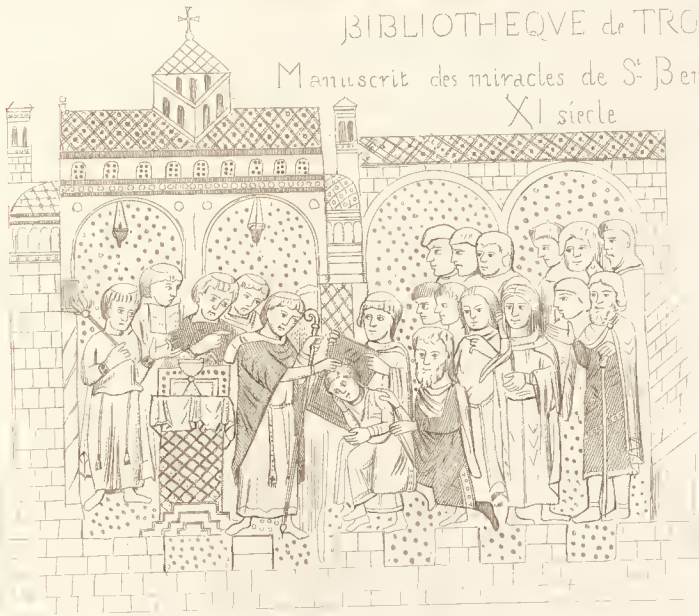 BIBLIOTHEQVE de TRO
Manuscrit des miracles de St. Ben
XI siecle